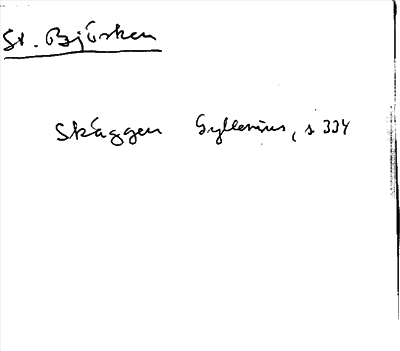 St. Björken
Skäggen Gyllenius, s 334